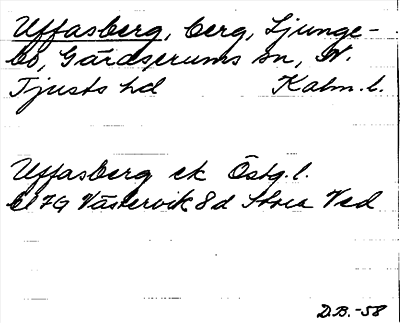 Uffasberg, berg, Ljunge-
bo, Gärdserums sn, N.
Tjusts hd Kalm. l.
Uffasberg ek Östg. l.
bl 79 Västervik 8d Stora Ved
D.B.-58